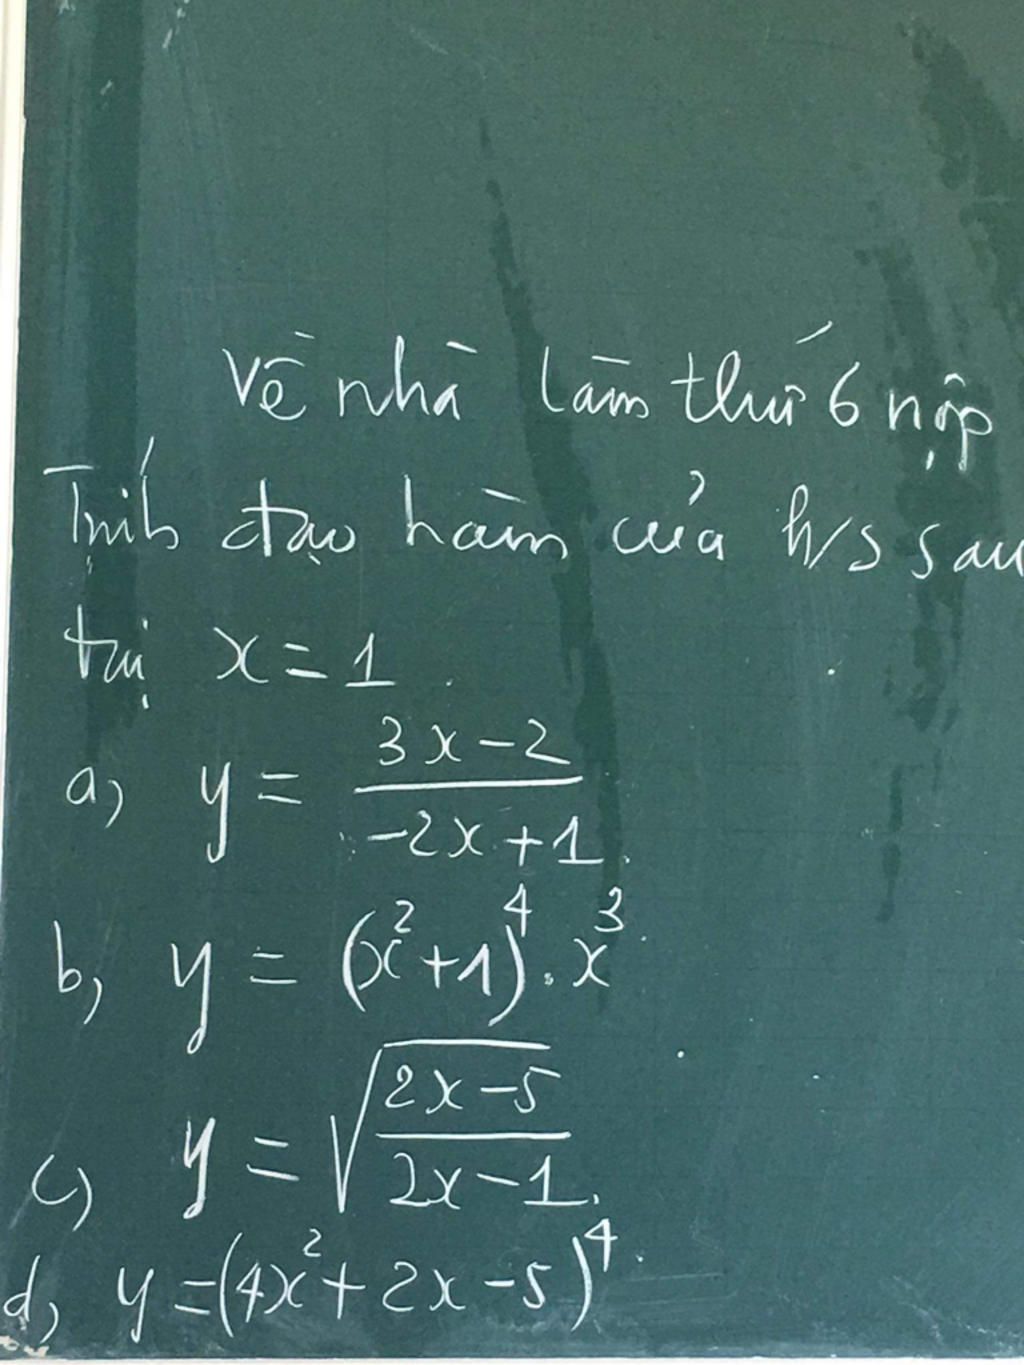 Về nhà làm thứ 6 nộp
Tính đạo hàm của h/s sau
tại x = 1.
a, y = \frac{3x-2}{-2x+1}.
b, y = (x^2+1)^4 . x^3
c) y = \sqrt{\frac{2x-5}{2x-1}}.
d, y = (4x^2+2x-5)^4.